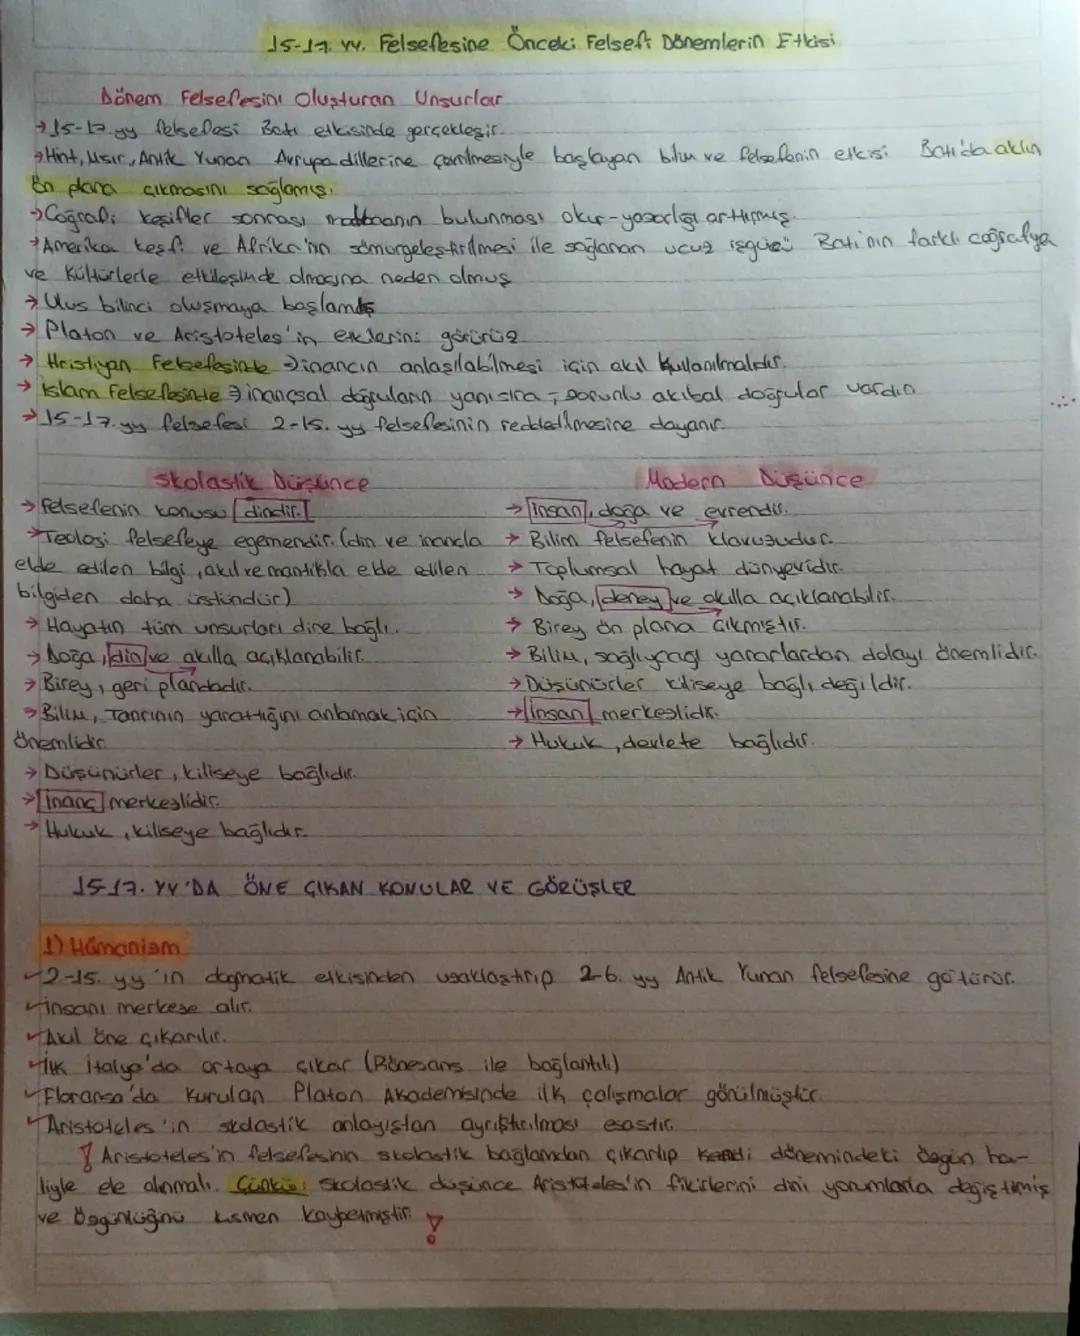 15-17. yy. Felsefesine Önceki Felsefi Dönemlerin Etkisi
Dönem Felsefesini Oluşturan Unsurlar
→ 15-17.yy felsefesi Batı etkisinde gerçekleşir.
→ Hint, Mısır, Antik Yunan Avrupa dillerine çevrilmesiyle başlayan bilim ve felsefenin etkisi Batı'da aklın
ön plana çıkmasını sağlamış.
→ Coğrafi keşifler sonrası matbaanın bulunması okur-yazarlığı arttırmış.
→ Amerika keşfi ve Afrika'nın sömürgeleştirilmesi ile sağlanan ucuz işgücü Batı'nın farklı coğrafya
ve kültürlerle etkileşimde olmasına neden olmuş
→ Ulus bilinci oluşmaya başlamış
→ Platon ve Aristoteles'in etkilerini görürüz
→ Hristiyan Felsefesinde → inancın anlaşılabilmesi için akıl kullanılmalıdır.
→ İslam Felsefesinde → inançsal doğruların yanısıra, zorunlu akılsal doğrular vardır.
→ 15-17.yy felsefesi 2-15. yy felsefesinin reddedilmesine dayanır.
Skolastik Düşünce Modern Düşünce
→ Felsefenin konusu dindir. → İnsan, doğa ve evrendir.
→ Teoloji felsefeye egemendir. (din ve inançla → Bilim felsefenin klavuzudur.
elde edilen bilgi, akıl ve mantıkla elde edilen → Toplumsal hayat dünyevidir.
bilgiden daha üstündür) → Doğa, deney ve akılla açıklanabilir.
→ Hayatın tüm unsurları dine bağlı. → Birey ön plana çıkmıştır.
→ Doğa, din ve akılla açıklanabilir. → Bilim, sağlıycağı yararlardan dolayı önemlidir.
→ Birey, geri plandadır. → Düşünürler kiliseye bağlı değildir.
→ Bilim, Tanrının yarattığını anlamak için → İnsan merkezlidir.
önemlidir. → Hukuk, devlete bağlıdır.
→ Düşünürler, kiliseye bağlıdır.
→ İnanç merkezlidir.
→ Hukuk, kiliseye bağlıdır.
15-17. YY'DA ÖNE ÇIKAN KONULAR VE GÖRÜŞLER
1) Hümanizm
✓ 2-15. yy'ın dogmatik etkisinden uzaklaştırıp 2-6. yy Antik Yunan felsefesine götürür.
✓ İnsanı merkeze alır.
✓ Akıl öne çıkarılır.
✓ İlk İtalya'da ortaya çıkar (Rönesans ile bağlantılı)
✓ Floransa'da kurulan Platon Akademisinde ilk çalışmalar görülmüştür.
✓ Aristoteles'in skolastik anlayıştan ayrıştırılması esastır.
! Aristoteles'in felsefesinin skolastik bağlamdan çıkarılıp kendi dönemindeki özgün ha-
liyle ele alınmalı. Çünkü; skolastik düşünce Aristoteles'in fikirlerini dini yorumlarla değiştirmiş
ve özgünlüğünü kısmen kaybetmiştir. !